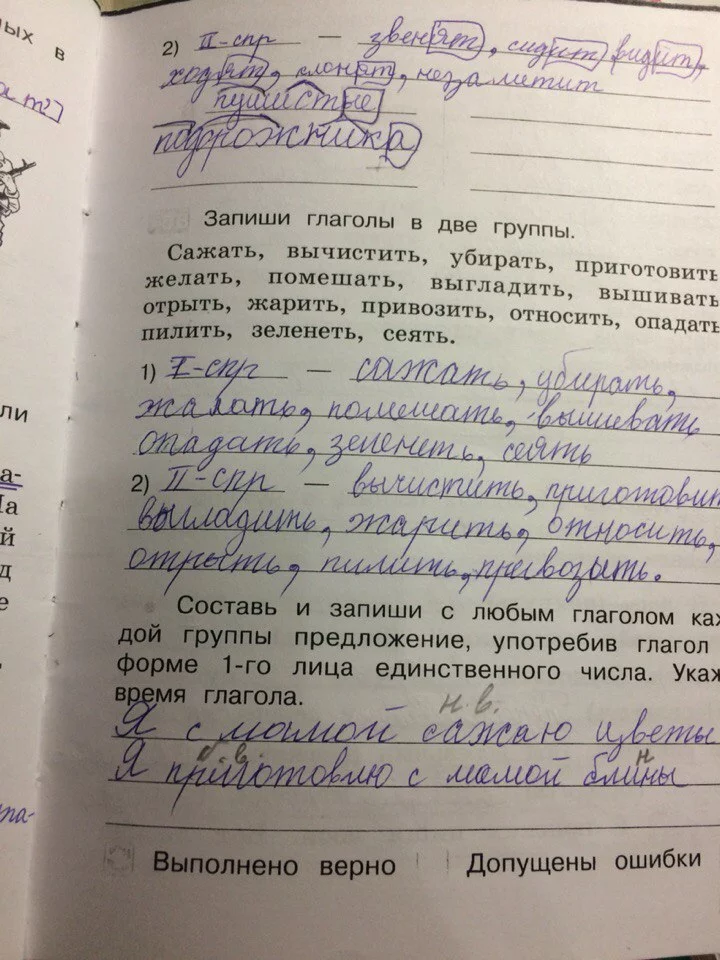 ых в
2) II-спр — звенят, сидит, видит,
ходят, клонят, незаметит
пушистые
подорожника
Запиши глаголы в две группы.
Сажать, вычистить, убирать, приготовить
желать, помешать, выгладить, вышивать
отрыть, жарить, привозить, относить, опадать
пилить, зеленеть, сеять.
1) I-спр — сажать, убирать,
жалать, помешать, вышевать
опадать, зеленеть, сеять
2) II-спр — вычистить, приготовит
выгладить, жарить, относить,
отрыть, пилить, превозыть.
Составь и запиши с любым глаголом каж
дой группы предложение, употребив глагол
форме 1-го лица единственного числа. Укаж
время глагола.
н.в.
Я с мамой сажаю цветы
б.в.
Я приготовлю с мамой блины
н
Выполнено верно Допущены ошибки